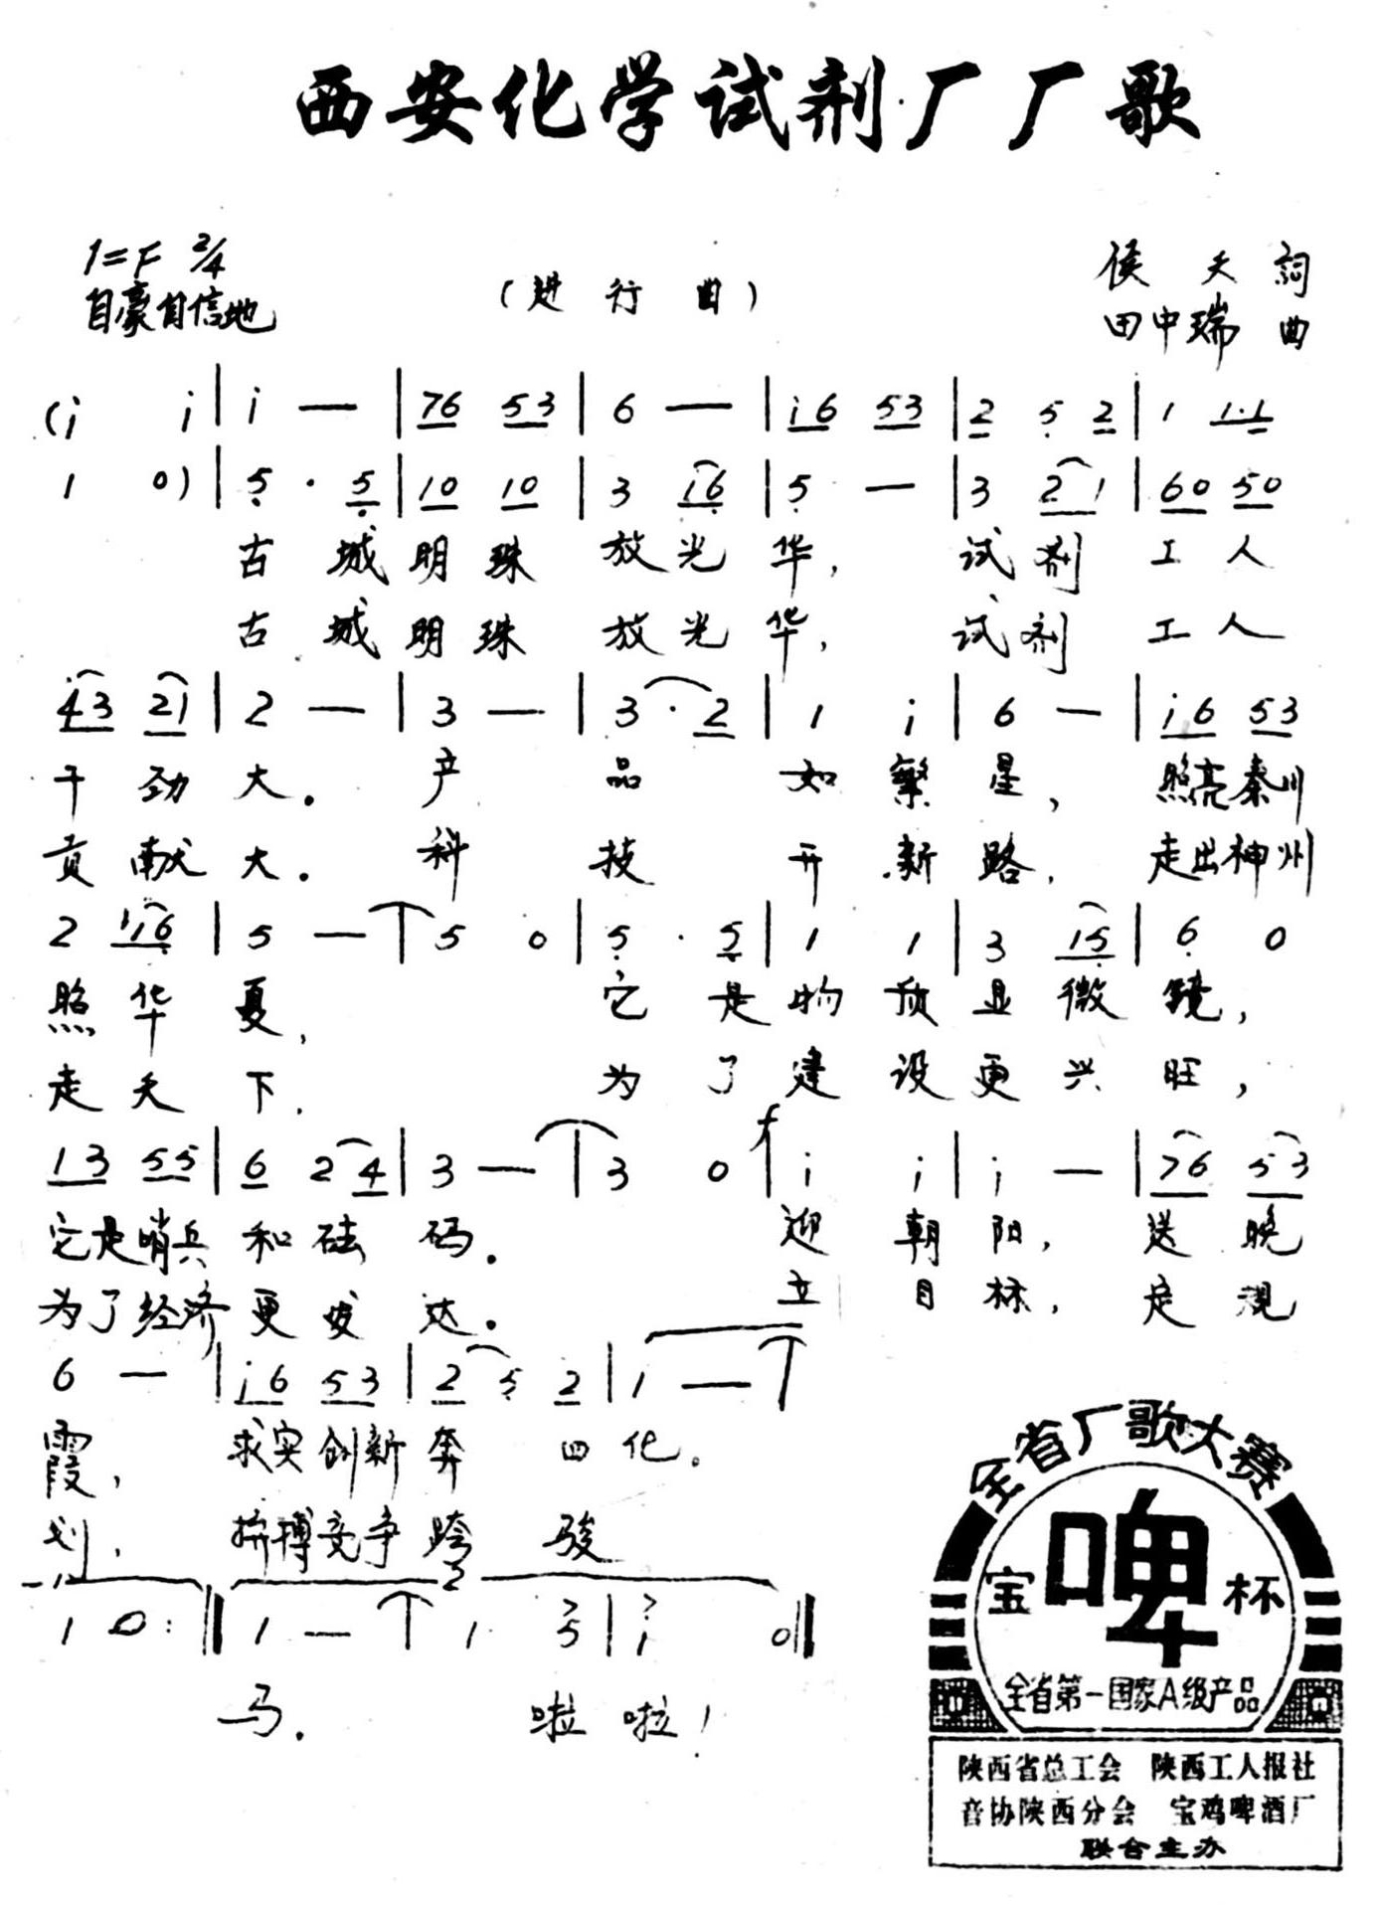 西安化学试剂厂厂歌
1=F 2/4
自豪自信地
(进行曲)
侯天詞
田中瑞 曲
(i i | i — | 76 53 | 6 — | i6 53 | 2 5 2 | 1 1·1
1 0) | 5 · 5 | 10 10 | 3 i6 | 5 — | 3 21 | 60 50
古城明珠 放光华, 试剂 工人
古城明珠 放光华, 试剂 工人
43 21 | 2 — | 3 — | 3·2 | 1 i | 6 — | i6 53
干劲大。产品如繁星, 照亮秦川
贡献大。科技开新路, 走出神州
2 116 | 5 — | 5 0 | 5 · 5 | 1 1 | 3 15 | 6 0
照华夏, 它是物质显微镜,
走天下. 为了建设更兴旺,
13 55 | 6 2 4 | 3 — | 3 0 | f i i | i — | 76 53
它是哨兵和砝码。迎朝阳, 送晚
为了经济更发达。立目标, 定规
6 — | i6 53 | 2 5 2 | 1 — |
霞, 求实创新奔四化。
划, 拚搏竞争跨骏
1 0 :‖ 1 — | 1 5 | i 0 ‖
马. 啦啦!
全省厂歌大赛
宝啤杯
全省第一国家A级产品
陕西省总工会 陕西工人报社
音协陕西分会 宝鸡啤酒厂
联合主办